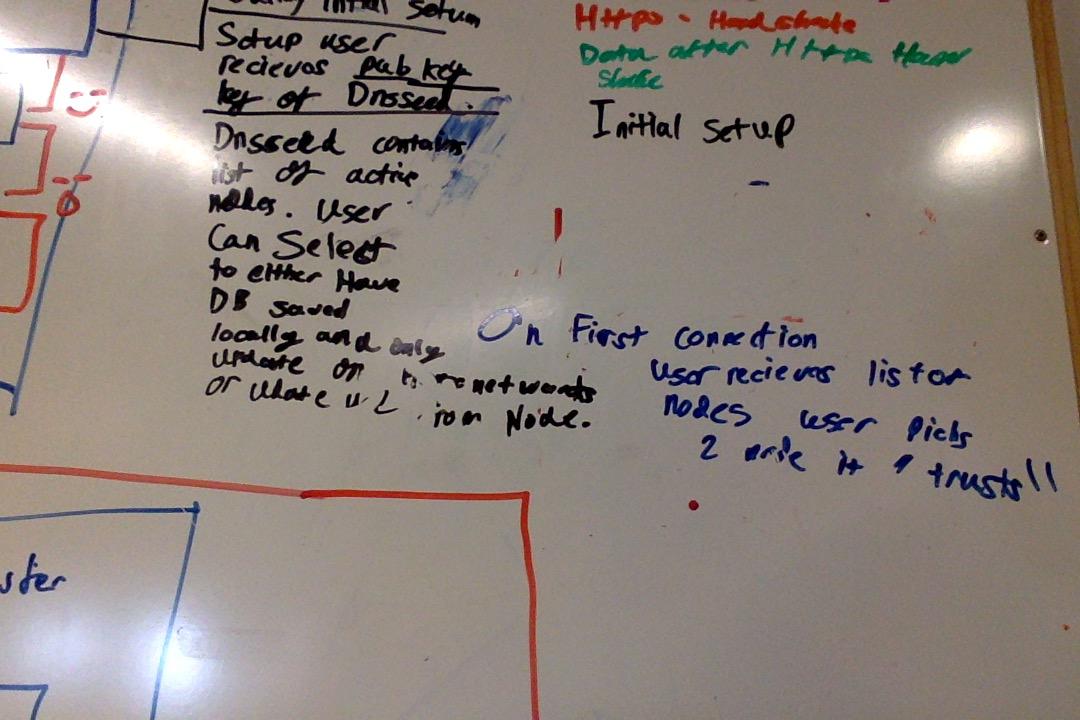 initial setup
Setup user
recievas pub key
key of Dnsseed.
Dnsseed contains
list of active
nodes. User
Can Select
to either Have
DB saved
locally and only
update on networks
or udate Node.
Https - Handshake
Data after Https Hand
Shake
Initial setup
On First connection
user recievas list of
nodes user Picks
2 it trusts!!
ster